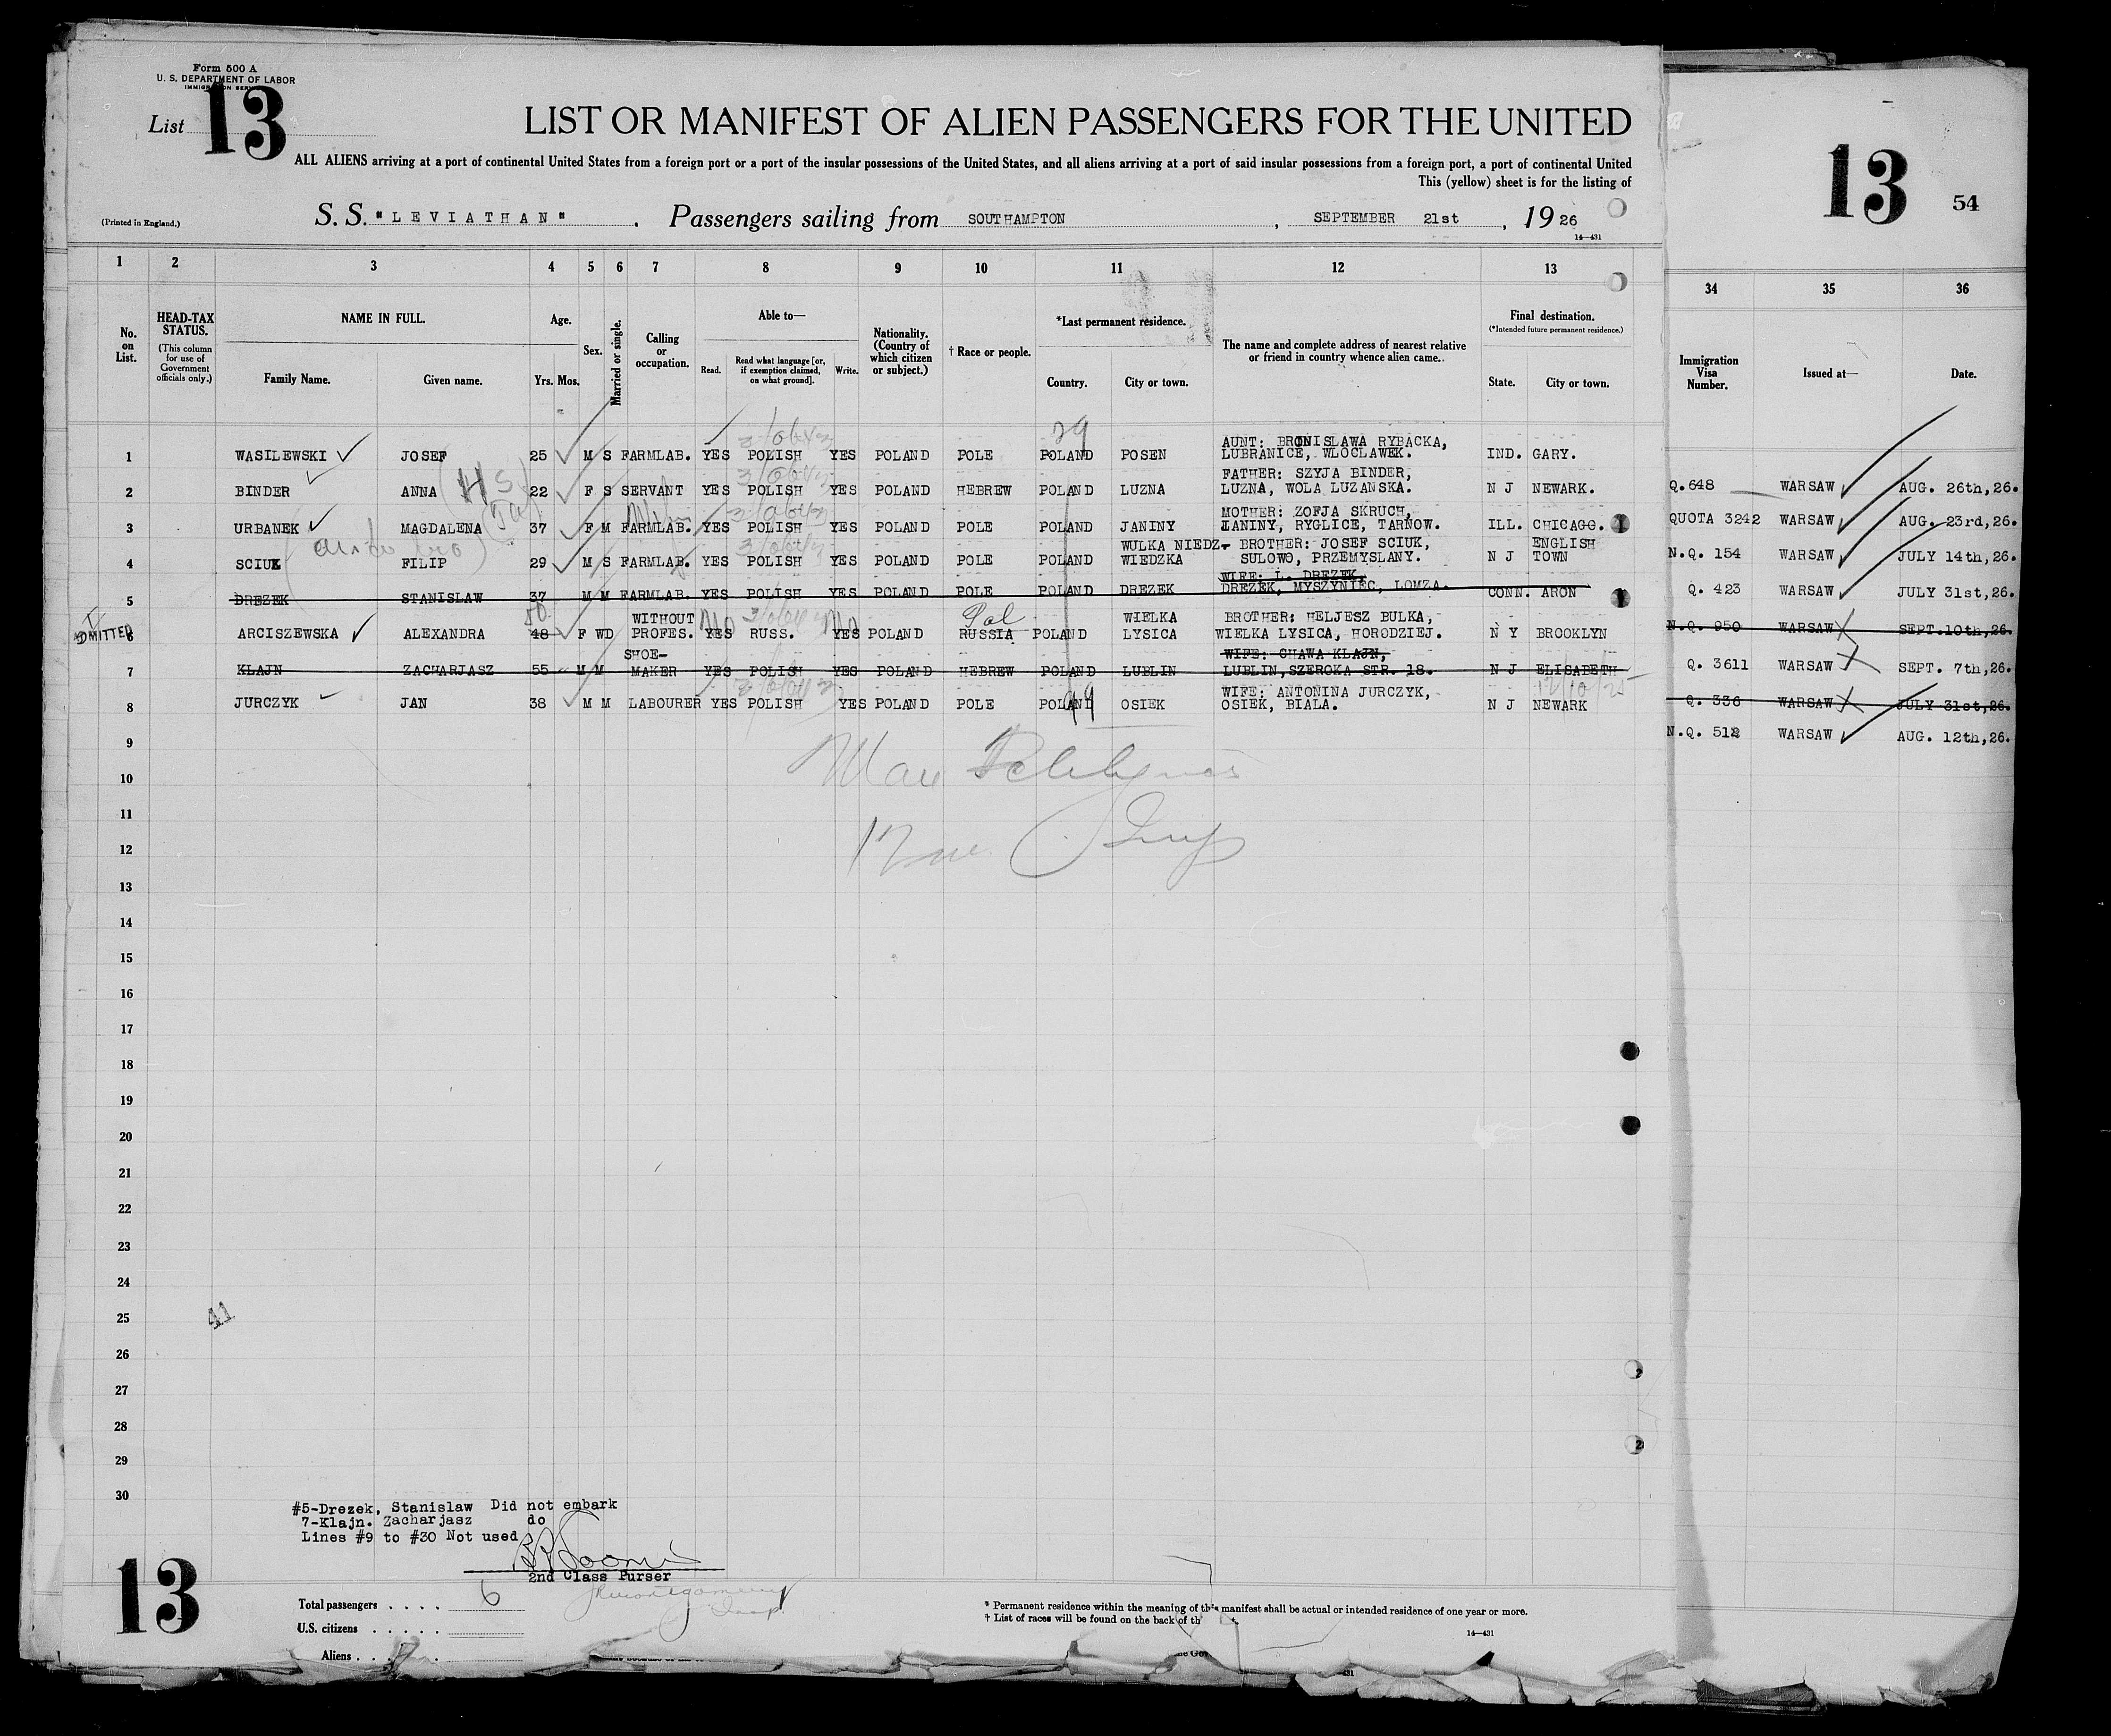 Form 500 A
U. S. DEPARTMENT OF LABOR
List 13
LIST OR MANIFEST OF ALIEN PASSENGERS FOR THE UNITED
ALL ALIENS arriving at a port of continental United States from a foreign port or a port of the insular possessions of the United States, and all aliens arriving at a port of said insular possessions from a foreign port, a port of continental United
This (yellow) sheet is for the listing of
(Printed in England.)
S. S. "LEVIATHAN". Passengers sailing from SOUTHAMPTON, SEPTEMBER 21st, 1926
14—431
13 54
1 2 3 4 5 6 7 8 9 10 11 12 13
34 35 36
No. on List.
HEAD-TAX STATUS.
(This column for use of Government officials only.)
NAME IN FULL.
Family Name. Given name.
Age.
Yrs. Mos.
Sex.
Married or single.
Calling or occupation.
Able to—
Read. Read what language [or, if exemption claimed, on what ground]. Write.
Nationality. (Country of which citizen or subject.)
† Race or people.
*Last permanent residence.
Country. City or town.
The name and complete address of nearest relative or friend in country whence alien came.
Final destination.
(*Intended future permanent residence.)
State. City or town.
Immigration Visa Number.
Issued at—
Date.
29
AUNT: BRONISLAWA RYBACKA,
1 WASILEWSKI JOSEF 25 M S FARMLAB. YES POLISH YES POLAND POLE POLAND POSEN LUBRANICE, WLOCLAWEK. IND. GARY.
Q.648 WARSAW AUG. 26th,26.
FATHER: SZYJA BINDER,
2 BINDER ANNA 22 F S SERVANT YES POLISH YES POLAND HEBREW POLAND LUZNA LUZNA, WOLA LUZANSKA. N J NEWARK.
QUOTA 3242 WARSAW AUG. 23rd,26.
MOTHER: ZOFJA SKRUCH,
3 URBANEK MAGDALENA 37 F M FARMLAB. YES POLISH YES POLAND POLE POLAND JANINY JANINY, RYGLICE, TARNOW. ILL. CHICAGO.
N.Q. 154 WARSAW JULY 14th,26.
WULKA NIEDZ- BROTHER: JOSEF SCIUK, ENGLISH
4 SCIUK FILIP 29 M S FARMLAB. YES POLISH YES POLAND POLE POLAND WIEDZKA SULOWO, PRZEMYSLANY. N J TOWN
Q. 423 WARSAW JULY 31st,26.
WIFE: L. DREZEK,
5 DREZEK STANISLAW 37 M M FARMLAB. YES POLISH YES POLAND POLE POLAND DREZEK DREZEK, MYSZYNIEC, LOMZA. CONN. ARON
N.Q. 950 WARSAW SEPT.10th,26.
50 WITHOUT Pol WIELKA BROTHER: HELJESZ BULKA,
ADMITTED 6 ARCISZEWSKA ALEXANDRA 48 F WD PROFES. YES No RUSS. YES No POLAND RUSSIA POLAND LYSICA WIELKA LYSICA, HORODZIEJ. N Y BROOKLYN
Q. 3611 WARSAW SEPT. 7th,26.
SHOE- WIFE: CHAWA KLAJN,
7 KLAJN ZACHARJASZ 55 M M MAKER YES POLISH YES POLAND HEBREW POLAND LUBLIN LUBLIN,SZEROKA STR. 18. N J ELISABETH
Q. 336 WARSAW JULY 31st,26.
WIFE: ANTONINA JURCZYK,
8 JURCZYK JAN 38 M M LABOURER YES POLISH YES POLAND POLE POLAND OSIEK OSIEK, BIALA. N J NEWARK
N.Q. 512 WARSAW AUG. 12th,26.
9
10
11
12
13
14
15
16
17
18
19
20
21
22
23
24
25
26
27
28
29
30
41
#5-Drezek, Stanislaw Did not embark
7-Klajn. Zacharjasz do
Lines #9 to #30 Not used
2nd Class Purser
13
Total passengers . . . . 6
U.S. citizens . . . . . .
Aliens . .
* Permanent residence within the meaning of this manifest shall be actual or intended residence of one year or more.
† List of races will be found on the back of th
14—431